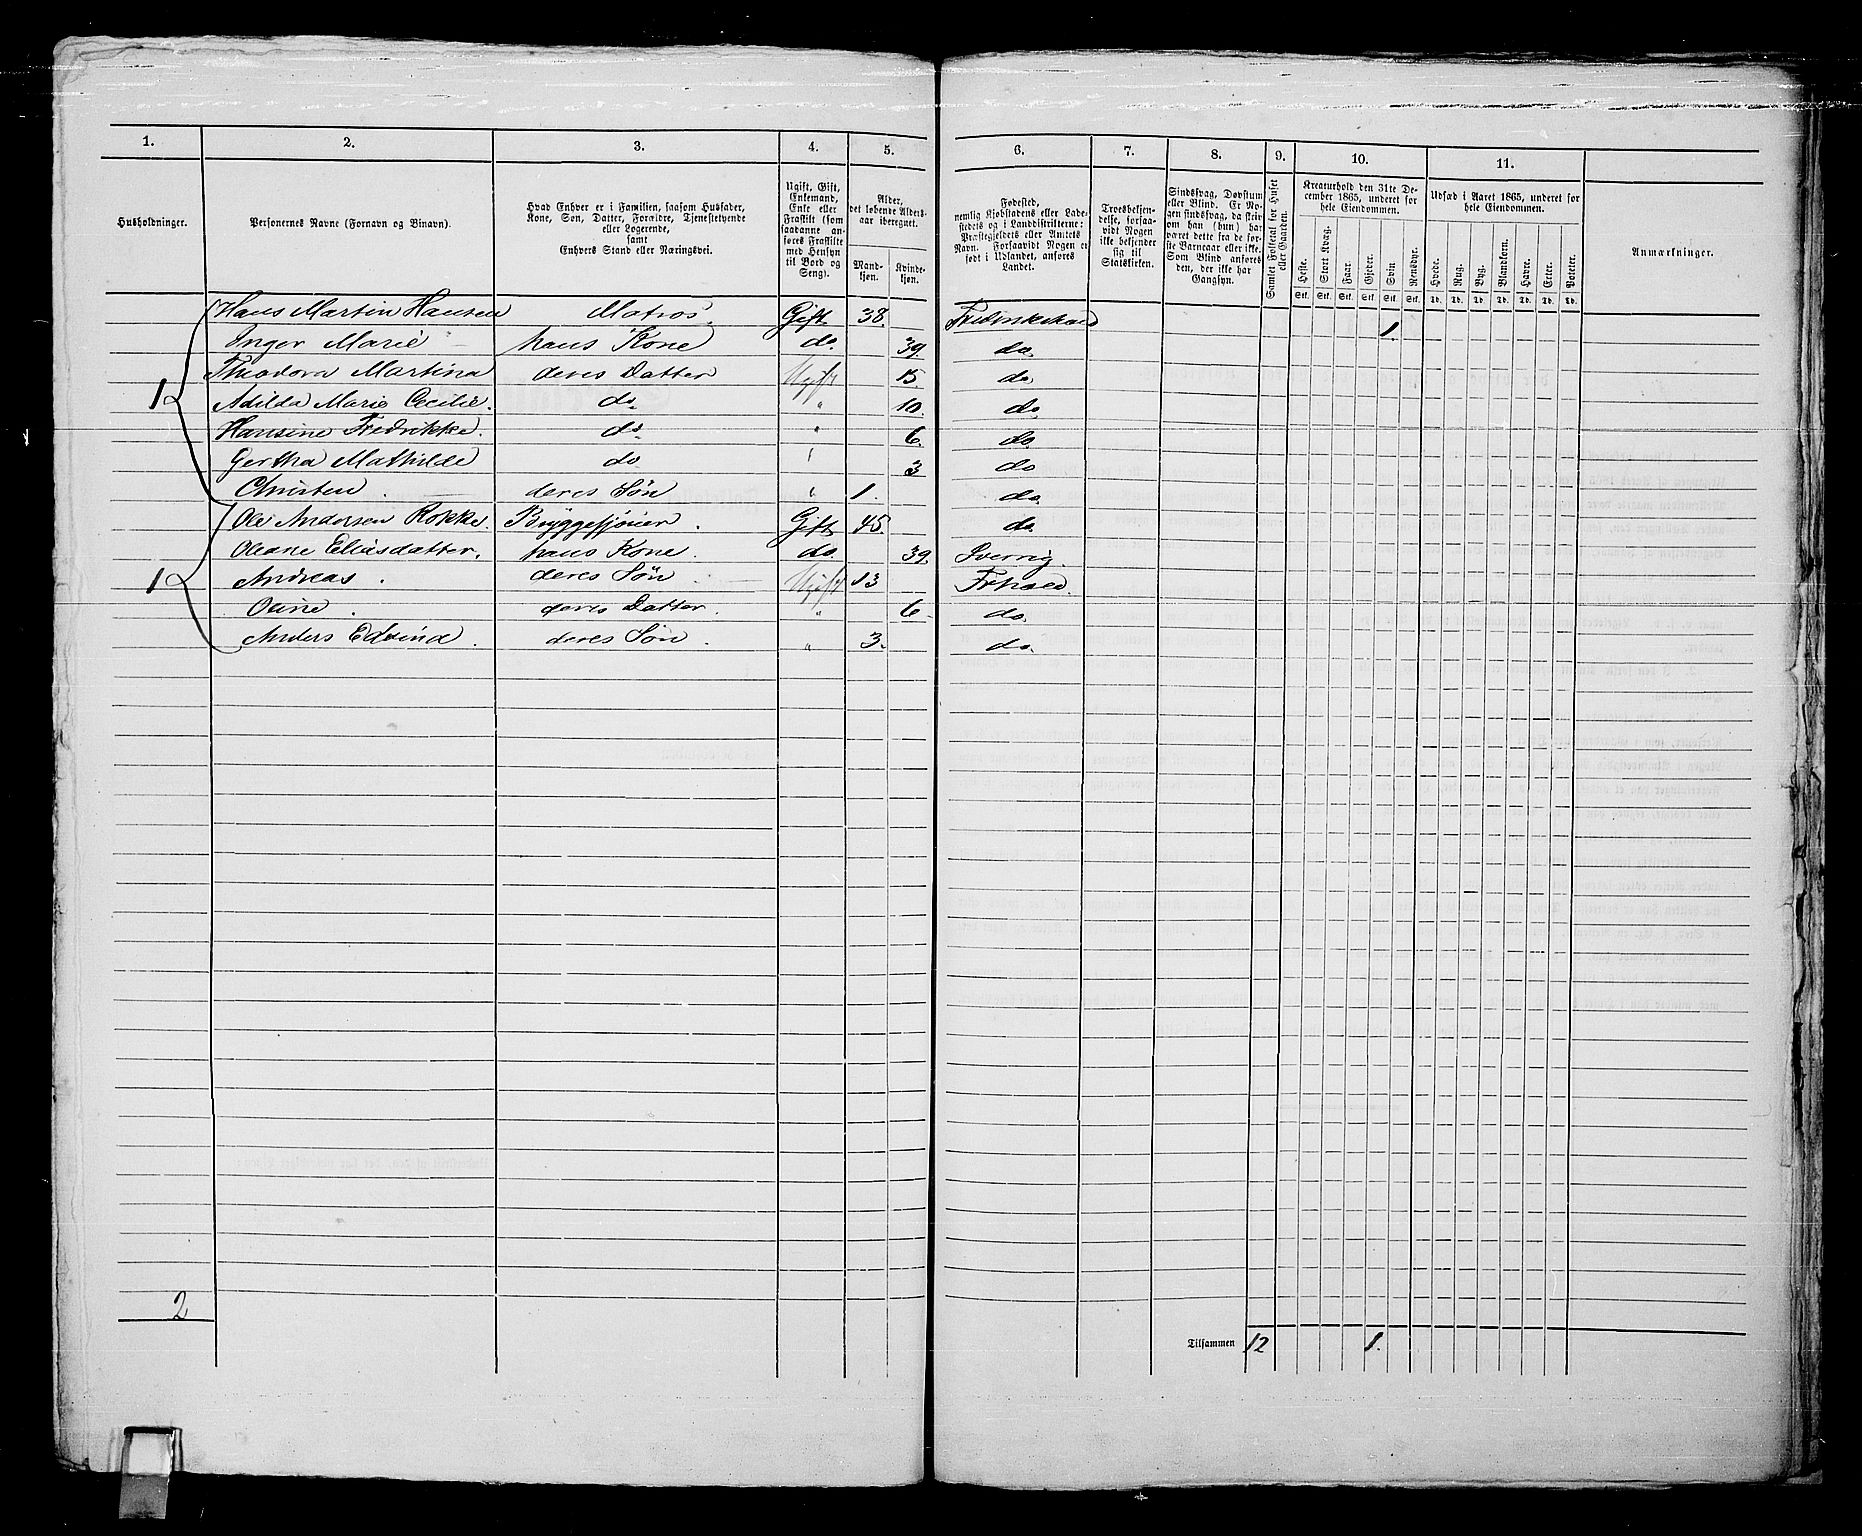 1. 2. 3. 4. 5. 6. 7. 8. 9. 10. 11.
Husholdninger.
Personernes Navne (Fornavn og Binavn).
Hvad Enhver er i Familien, saasom Husfader,
Kone, Søn, Datter, Forældre, Tjenestetyende
eller Logerende,
samt
Enhvers Stand eller Næringsvei.
Ugift, Gift,
Enkemand,
Enke eller
Fraskilt (som
saadanne an-
føres Fraskilte
med Hensyn
til Bord og
Seng).
Alder,
det løbende Alders-
aar iberegnet.
Mand-
kjøn.
Kvinde-
kjøn.
Fødested,
nemlig Kjøbstadens eller Lade-
stedets og i Landdistrikterne:
Præstegjeldets eller Annexets
Navn. Forsaavidt Nogen er
født i Udlandet, anføres
Landet.
Troesbekjen-
delse, forsaa-
vidt Nogen
ikke bekjender
sig til
Statskirken.
Sindssvag, Døvstum
eller Blind. Er No-
gen sindssvag, da skriv
om han (hun) har
været dette fra de før-
ste Barneaar eller ikke.
Som Blind anføres
den, der ikke har
Gangsyn.
Samlet Folketal for Huset
eller Gaarden.
Kreaturhold den 31te De-
cember 1865, underet for
hele Eiendommen.
Heste. Stort Kvæg. Faar. Gjeder. Svin Rensdyr.
Stk. Stk. Stk. Stk. Stk. Stk.
Udsæd i Aaret 1865, underet for
hele Eiendommen.
Hvede. Rug. Byg. Blandkorn. Havre. Erter. Poteter.
Td. Td. Td. Td. Td. Td. Td.
Anmærkninger.
Hans Martin Hansen Matros. Gift 38. Fredrikshald 1.
Inger Marie hans Kone do. 39. do.
Theodora Martina deres Datter Ugift 15 do.
1 Adilda Marie Cecilie. do. " 10. do
Hansine Fredrikke. do. " 6. do.
Gertha Mathilde do " 3 do
Christen. deres Søn " 1. do.
Ole Andersen Rokke. Bryggesjouer. Gift 45. do.
Oleane Eliasdatter. hans Kone. do. 39. Sverrig.
1 Andreas. deres Søn. Ugift 13 Frhald.
Oline. deres Datter. " 6. do.
Anders Edvind. deres Søn. " 3. do.
2
Tilsammen 12 1.